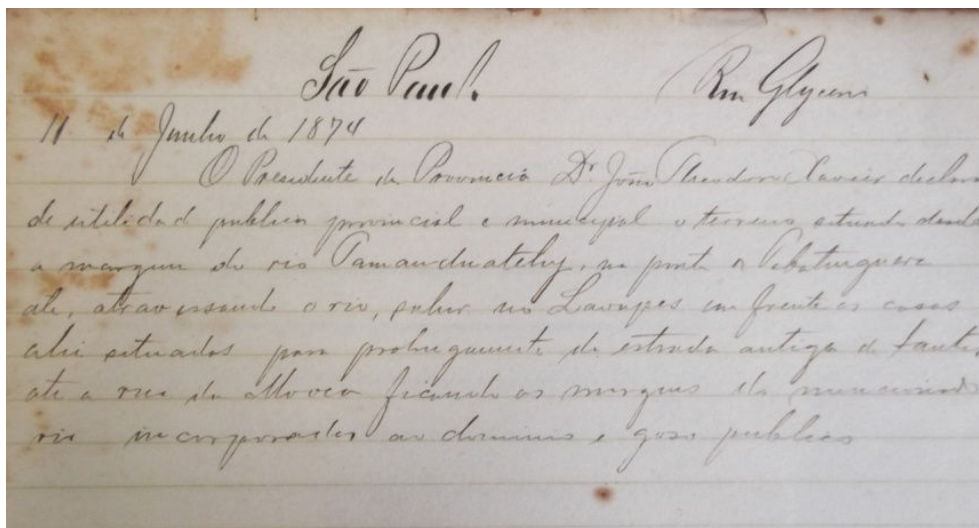 São Paul. Rua Glycerio
11 de Junho de 1874
O Presidente da Provincia Dr João Theodoro Xavier declara
de utilidad publica provincial e municipal o terreno situado desde
a margem do rio Tamanduatehy, na ponte o Tabatinguera
até, atravessando o rio, sahir no Lavapes em frente as casas
ahi situadas para prolongamento da estrada antiga de Santos
até a rua da Moóca ficando as margens do mencionado
rio incorporados ao dominio e goso publico